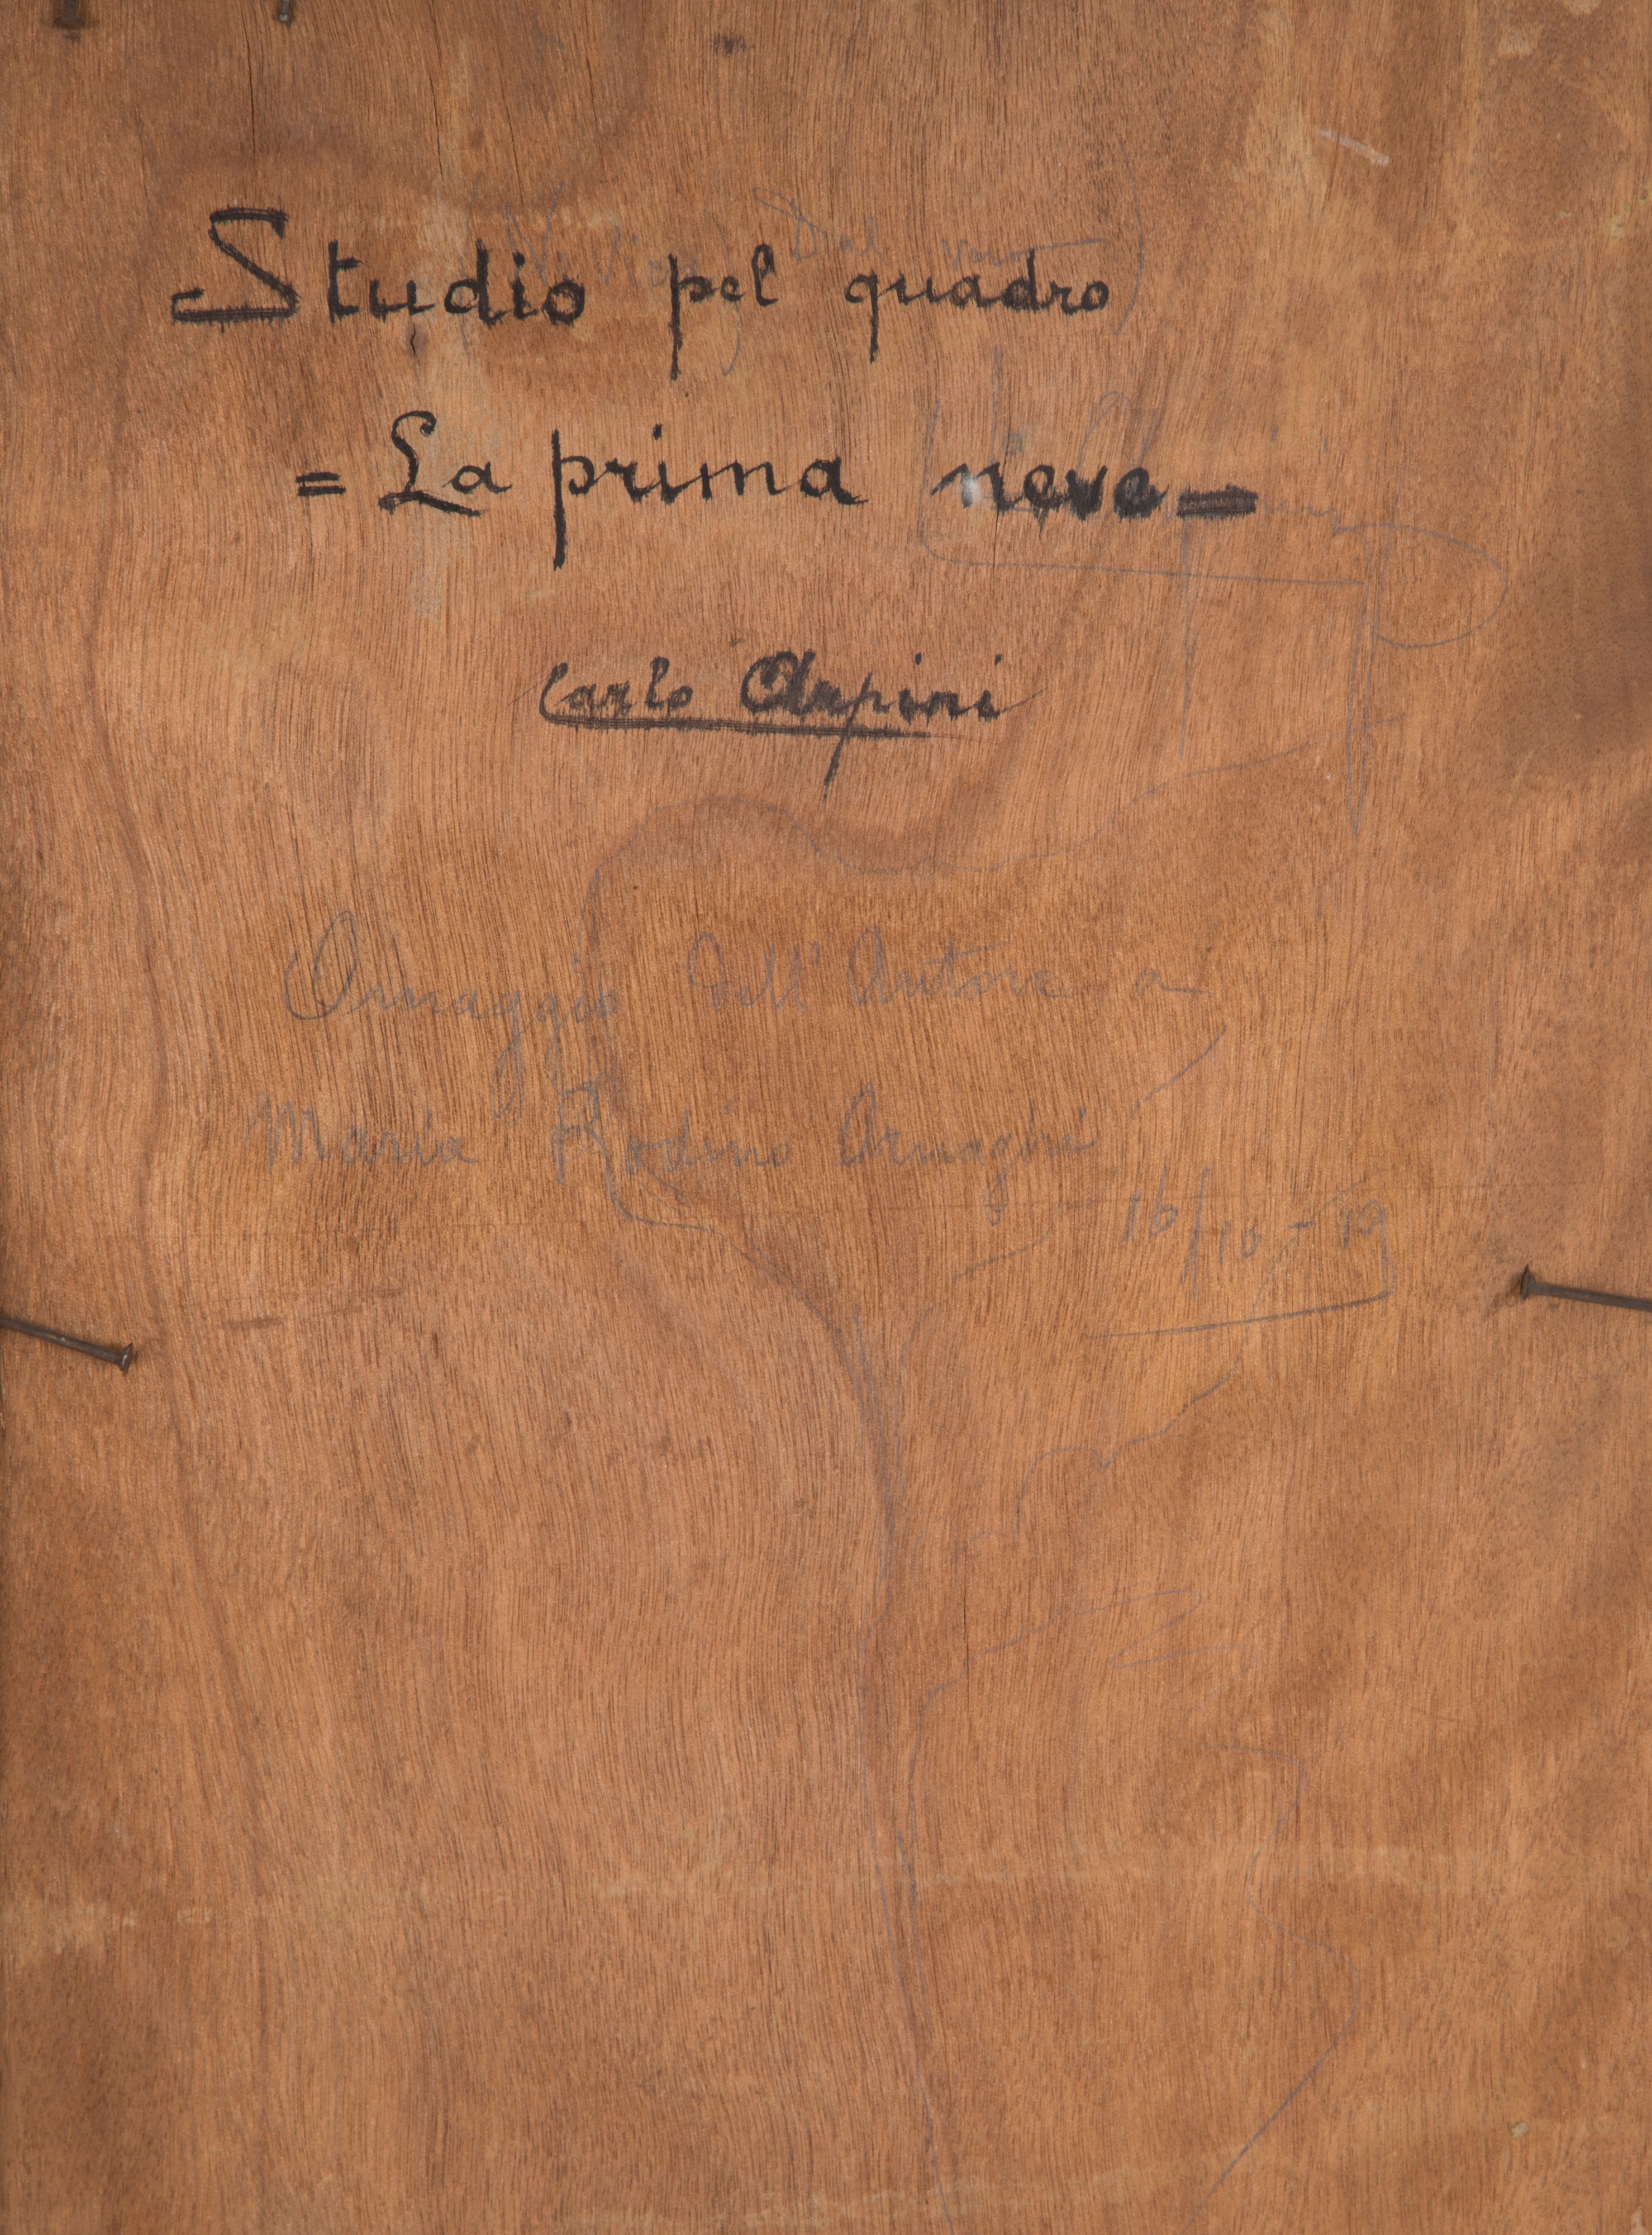 Studio pel quadro
= La prima neve =
Carlo Arpini
Omaggio dell' Autore a
Maria Rodino Arnaghi
16/10 - 19